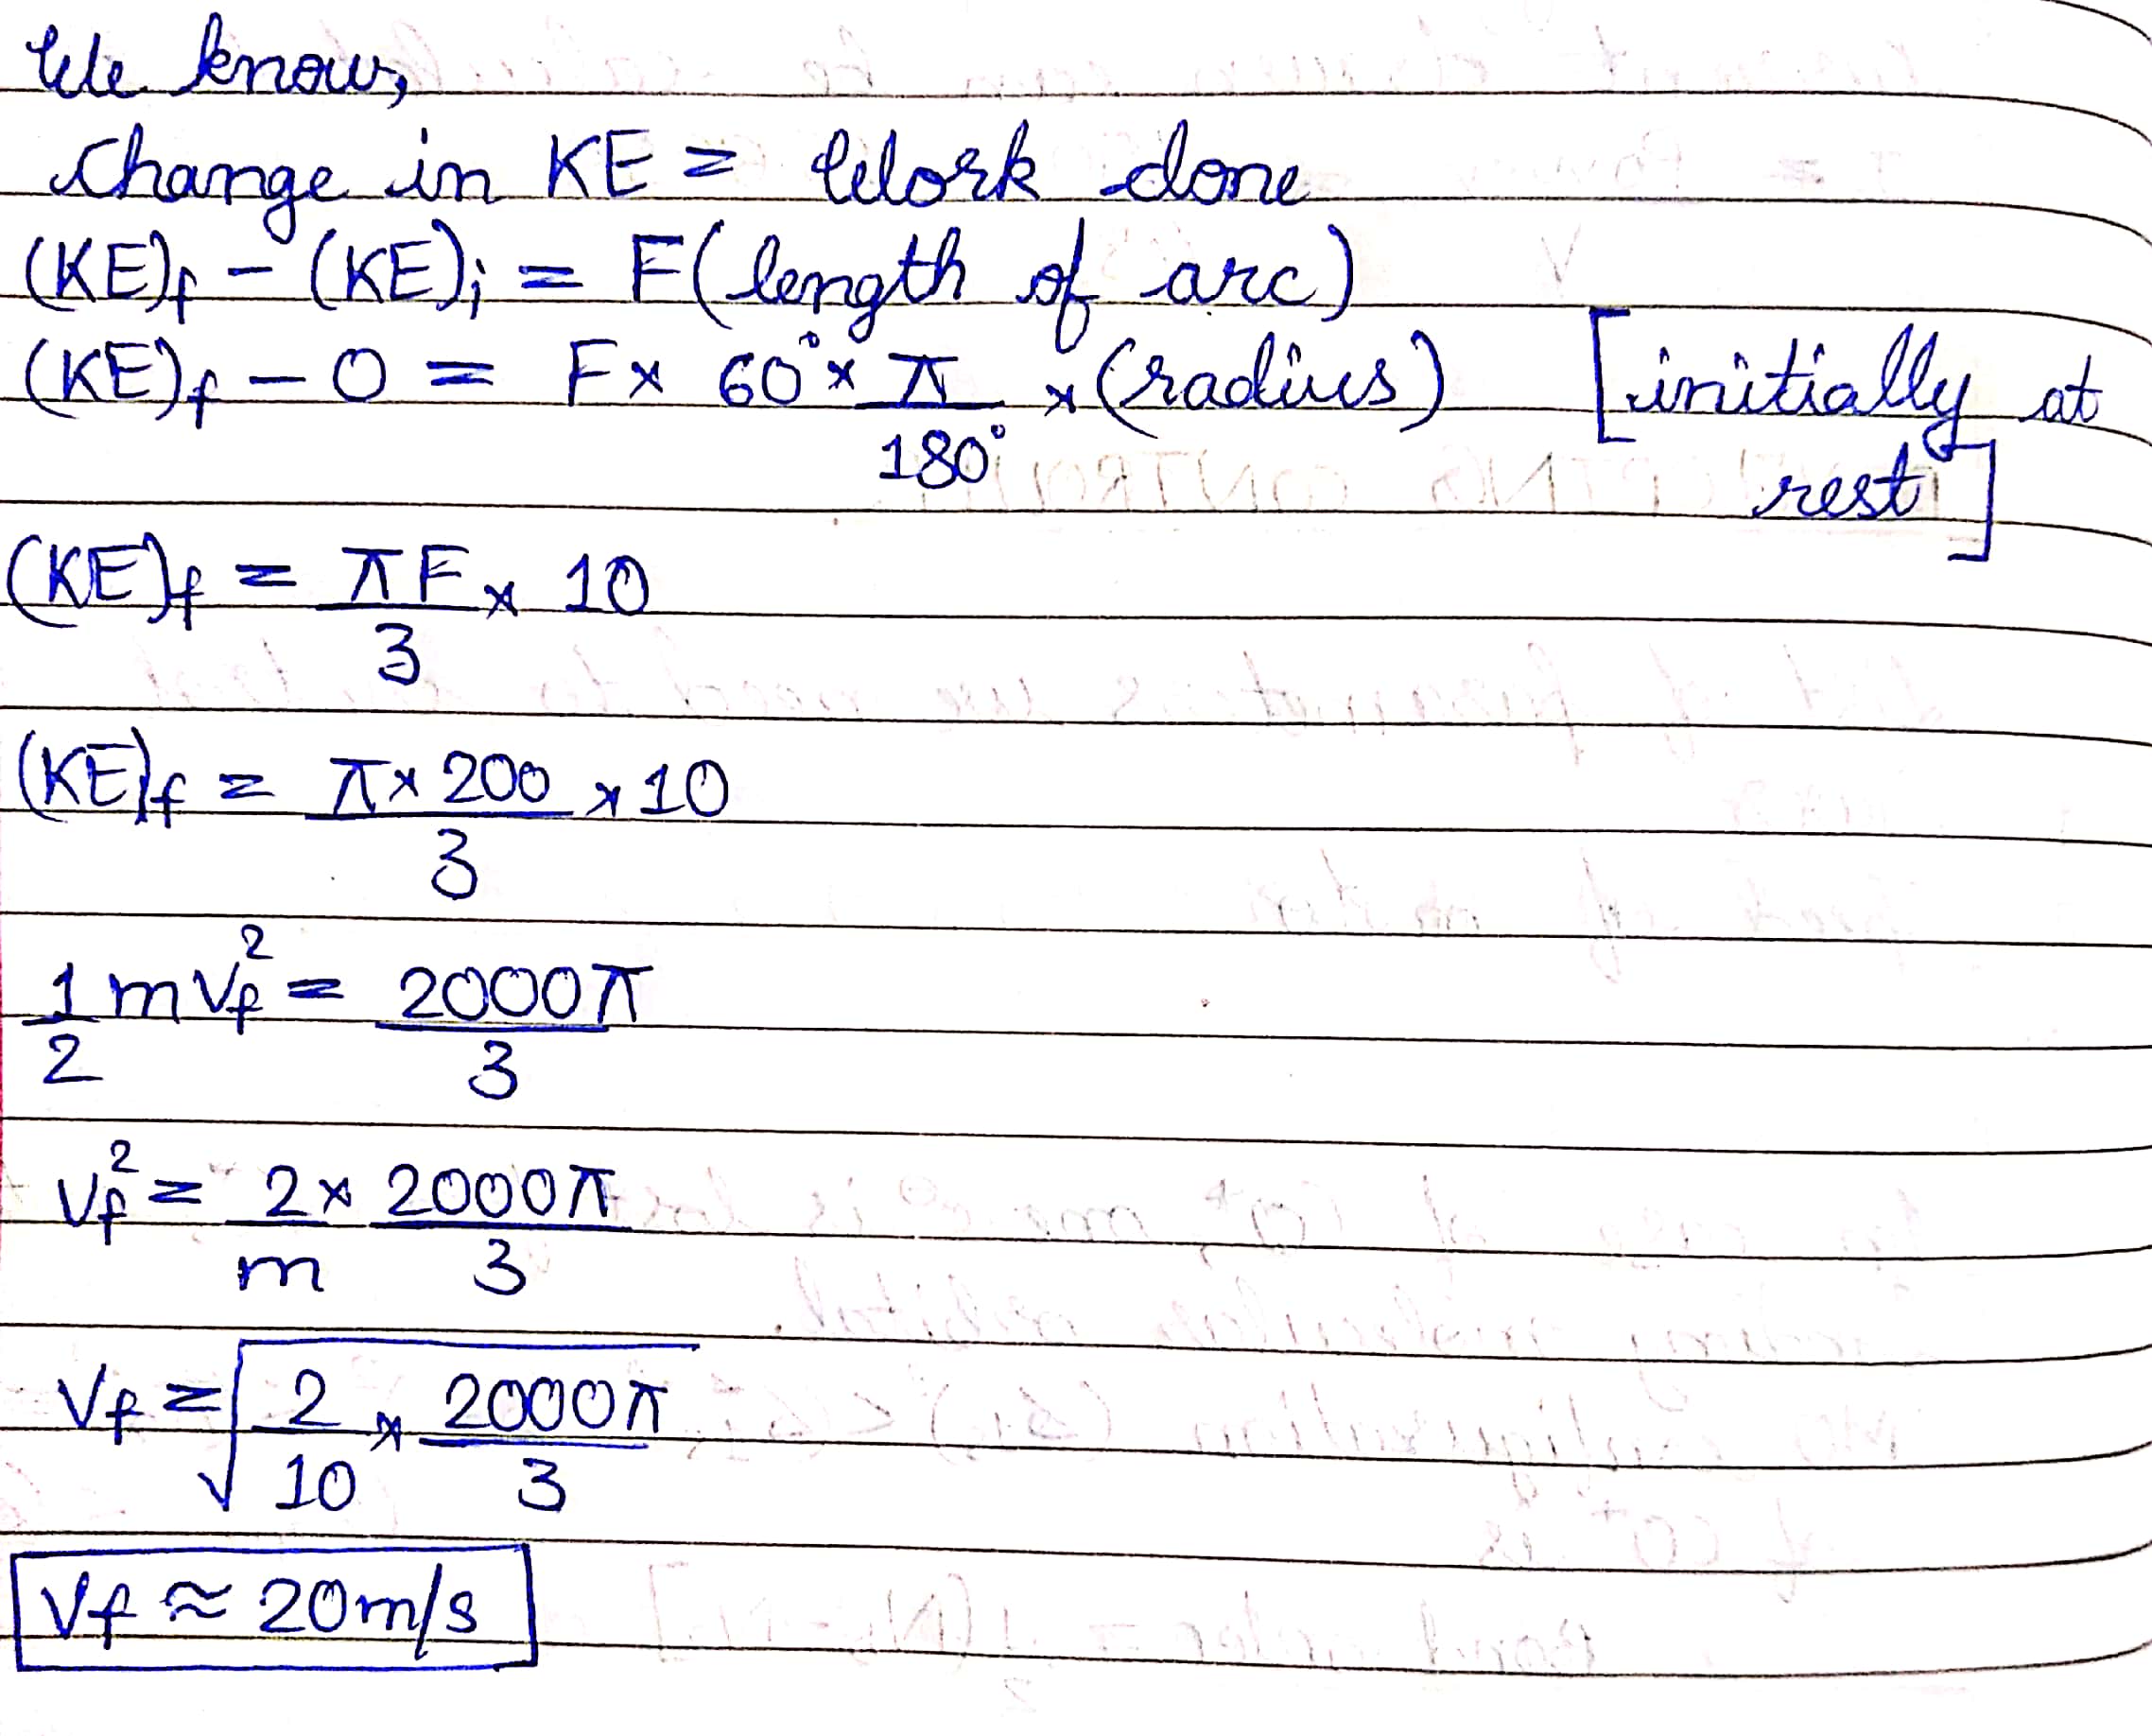 We know,
Change in KE = Work done
(KE)f - (KE)i = F(length of arc)
(KE)f - 0 = F x 60° x π/180° x (radius) [initially at rest]
(KE)f = πF/3 x 10
(KE)f = π x 200/3 x 10
1/2 mVf² = 2000π/3
Vf² = 2/m x 2000π/3
Vf = √(2/10 x 2000π/3)
Vf ≈ 20m/s